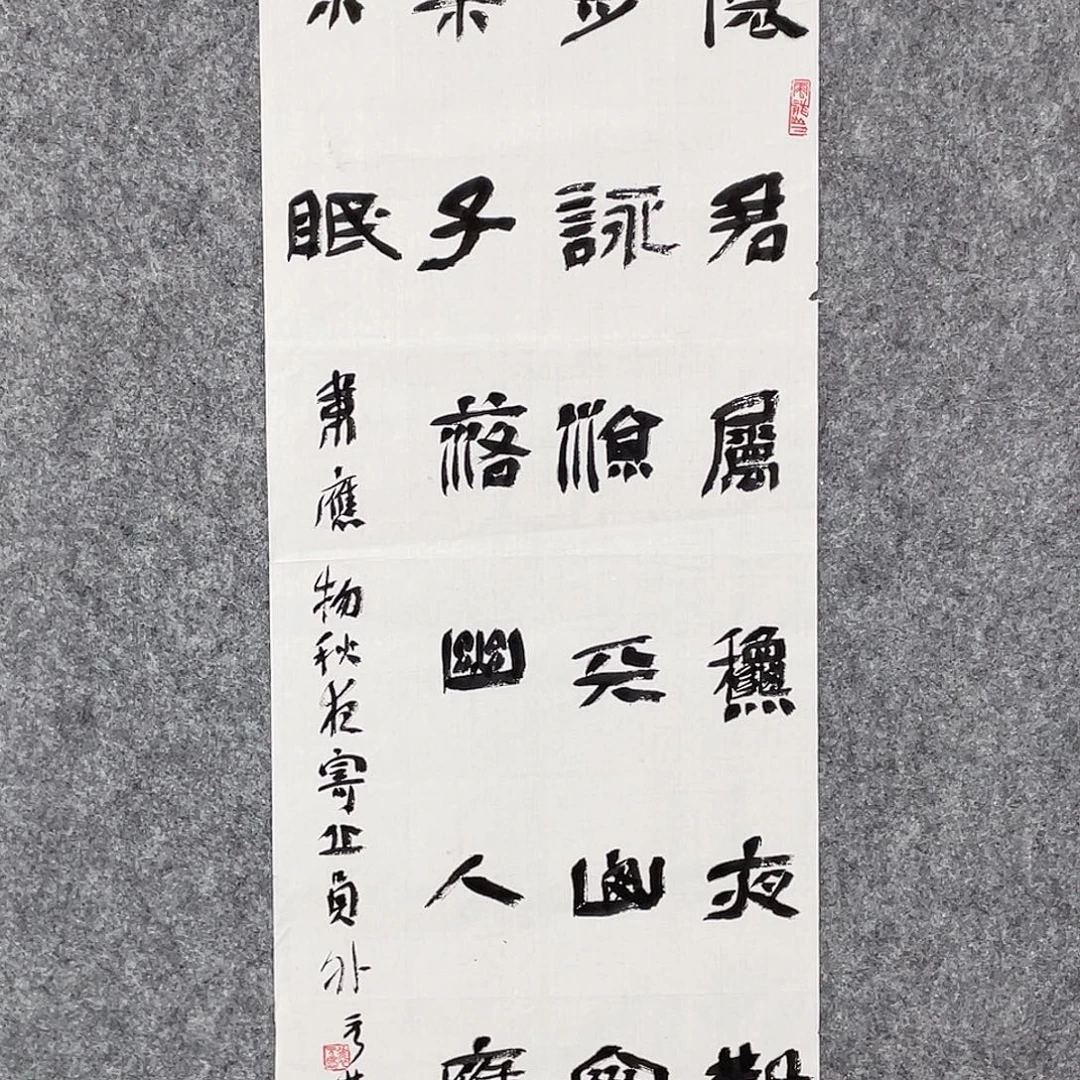 懷君屬龝夜散
步詠涼天山空
松子落幽人應
未眠
韋應物秋夜寄丘員外